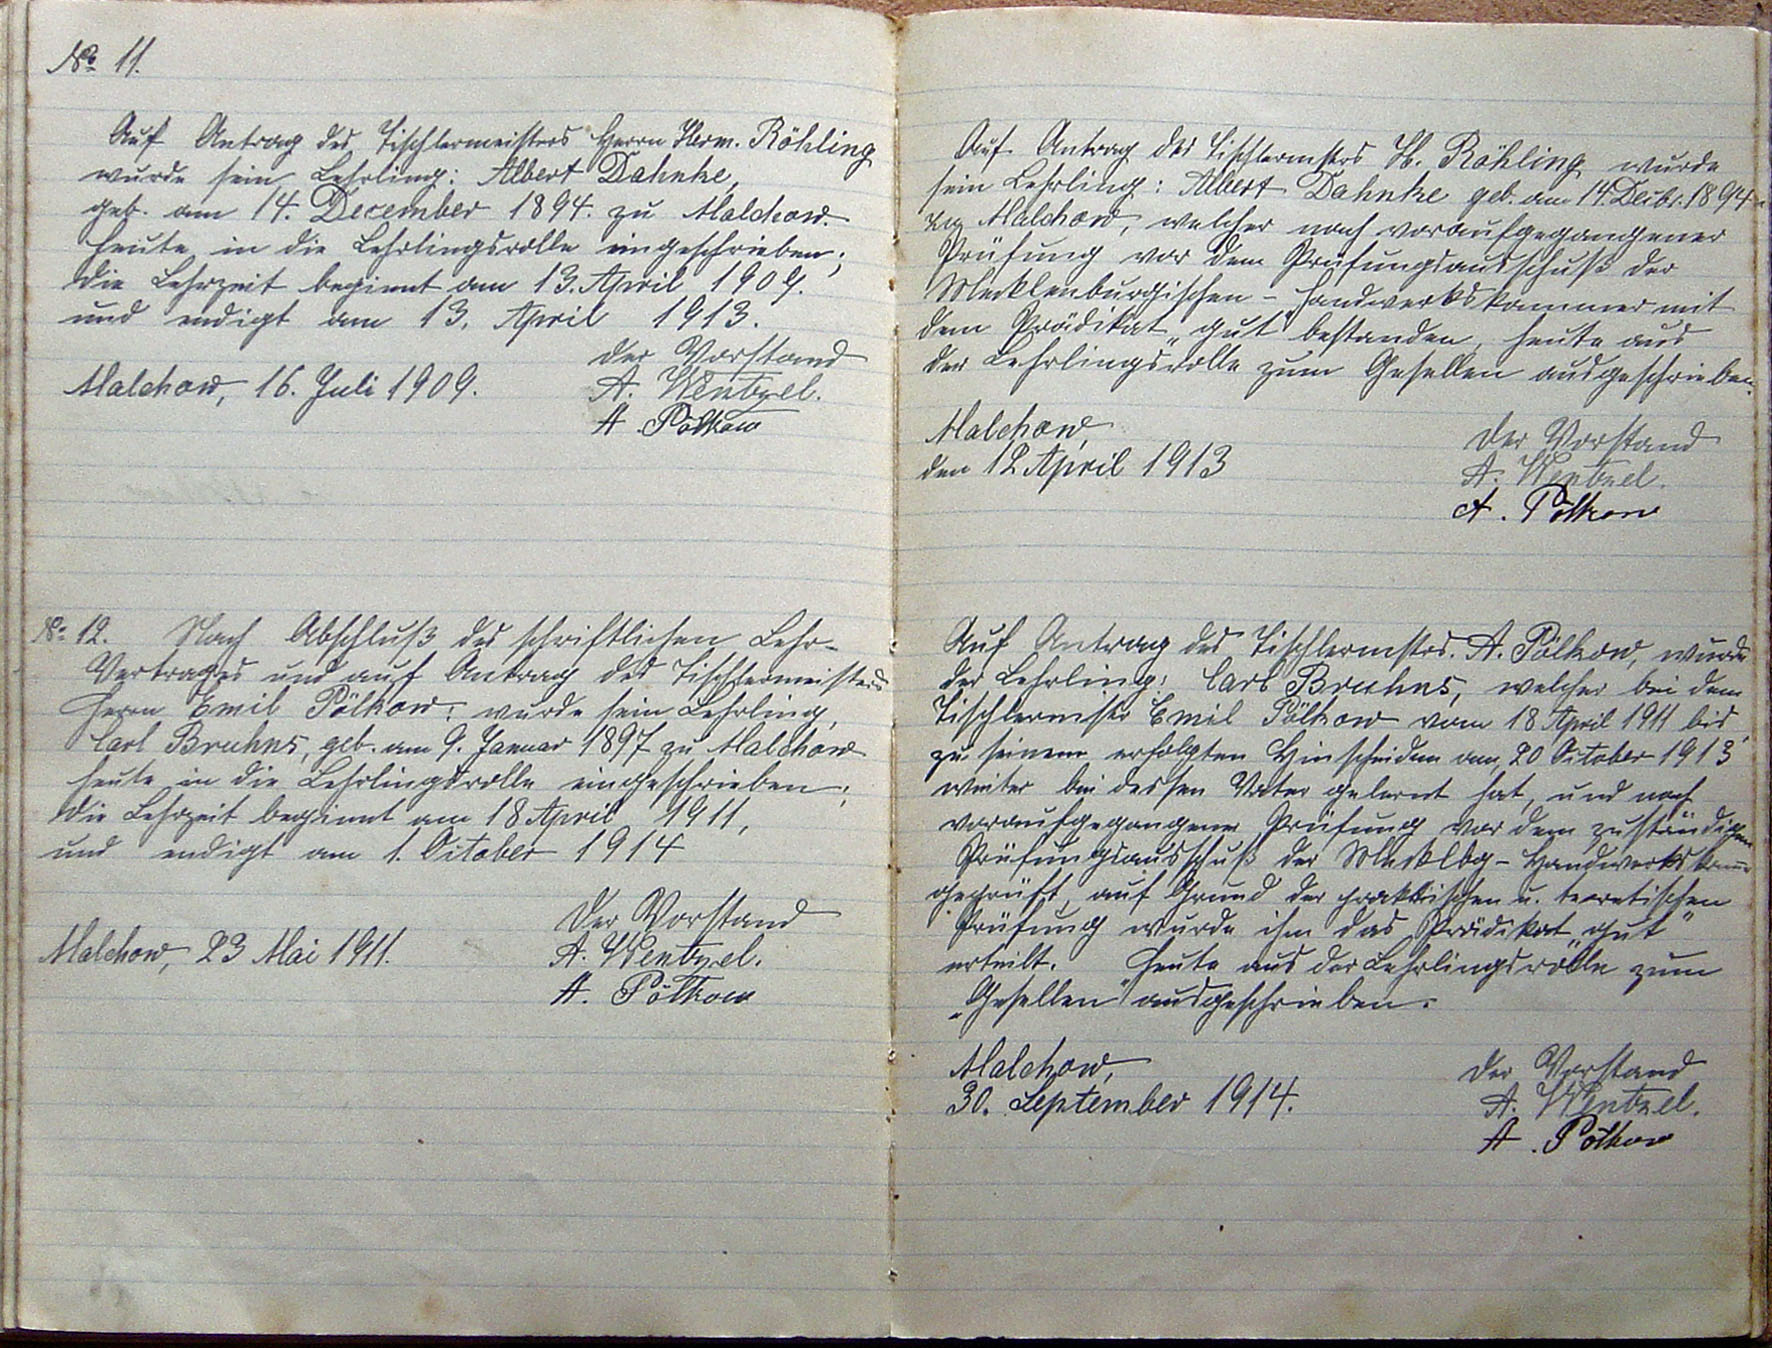 No 11.
Auf Antrag des Tischlermeisters Herrn Herm. Röhling
wurde sein Lehrling: Albert Dahnke,
geb. am 14. December 1894. zu Malchow.
heute in die Lehrlingsrolle eingeschrieben;
die Lehrzeit beginnt am 13. April 1909.
und endigt am 13. April 1913.
Der Vorstand
Malchow, 16. Juli 1909.
A. Wentzel.
A. Pölkow
No 12. Nach Abschluß des schriftlichen Lehr-
Vertrages und auf Antrag des Tischlermeisters
Herrn Emil Pölkow, wurde sein Lehrling,
Carl Bruhns, geb. am 9. Januar 1897 zu Malchow
heute in die Lehrlingsrolle eingeschrieben;
die Lehrzeit beginnt am 18 April 1911,
und endigt am 1. October 1914
Der Vorstand
Malchow, 23 Mai 1911.
A. Wentzel.
A. Pölkow
Auf Antrag des Tischlermstrs H. Röhling wurde
sein Lehrling: Albert Dahnke geb. am 14. Decbr. 1894
zu Malchow, welcher nach voraufgegangener
Prüfung vor dem Prüfungsausschuß der
Mecklenburgischen-Handwerkskammer mit
dem Prädikat „gut" bestanden, heute aus
der Lehrlingsrolle zum Gesellen ausgeschrieben.
Malchow,
den 12 April 1913
Der Vorstand
A. Wentzel.
A. Pölkow
Auf Antrag des Tischlermstrs. A. Pölkow, wurde
der Lehrling: Carl Bruhns, welcher bei dem
Tischlermstr Emil Pölkow vom 18 April 1911 bis
zu seinem erfolgten Hinscheiden am 20 October 1913
weiter bei dessen Vater gelernt hat, und nach
voraufgegangener Prüfung vor dem zuständigen
Prüfungsausschuß der Mecklbg-Handwerkskamm
geprüft, auf Grund der praktischen u. teoretischen
Prüfung wurde ihm das Prädikat „gut"
erteilt. Heute aus der Lehrlingsrolle zum
„Gesellen" ausgeschrieben.
Malchow,
30. September 1914.
Der Vorstand
A. Wentzel.
A. Pölkow